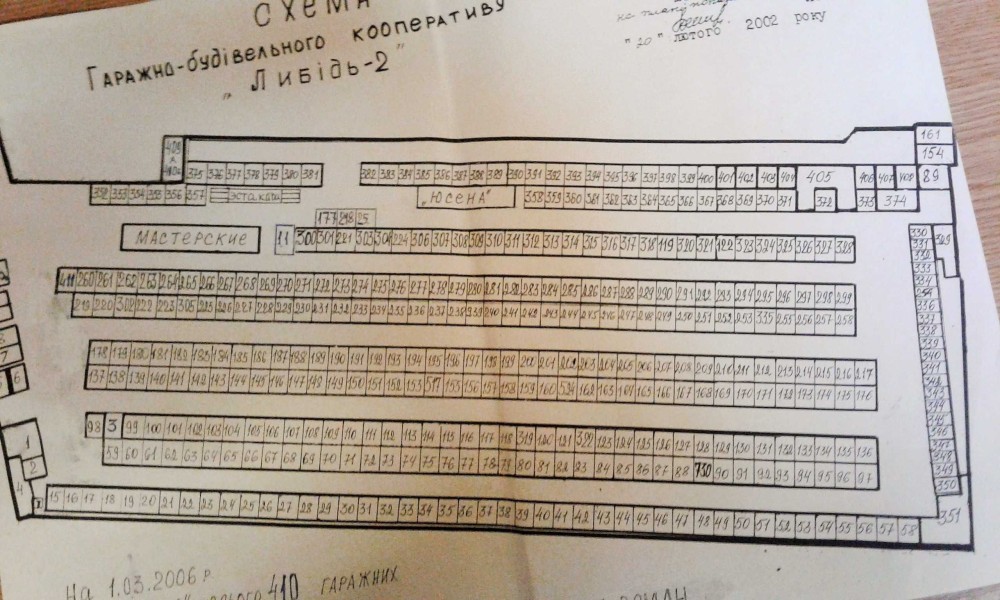 СХЕМА
Гаражно-будівельного кооперативу
„Либідь-2"
"20" лютого 2002 року
161
154
375 376 377 378 379 380 381
382 383 384 385 386 387 388 389 390 391 392 393 394 395 396 397 398 399 400 401 402 403 404 405 406 407 408 89
352 353 354 355 356 357 Эстакада „Юсена" 358 359 360 361 362 363 364 365 366 367 368 369 370 371 372 373 374
177 218 25
МАСТЕРСКИЕ 11 300 301 221 303 304 224 306 307 308 309 310 311 312 313 314 315 316 317 318 119 320 321 122 323 324 325 326 327 328
411 260 261 262 263 264 265 266 267 268 269 270 271 272 273 274 275 276 277 278 279 280 281 282 283 284 285 286 287 288 289 290 291 292 293 294 295 296 297 298 299
219 220 302 222 223 305 225 226 227 228 229 230 231 232 233 234 235 236 237 238 239 240 241 242 243 244 245 246 247 248 249 250 251 252 253 335 255 256 257 258
178 179 180 181 182 183 184 185 186 187 188 189 190 191 192 193 194 195 196 197 198 199 200 201 202 203 204 205 206 207 208 209 210 211 212 213 214 215 216 217
137 138 139 140 141 142 143 144 145 146 147 148 149 150 151 152 153 517 155 156 157 158 159 160 524 162 163 164 165 166 167 168 169 170 171 172 173 174 175 176
98 3 99 100 101 102 103 104 105 106 107 108 109 110 111 112 113 114 115 116 117 118 319 120 121 322 123 124 125 126 127 128 129 130 131 132 133 134 135 136
59 60 61 62 63 64 65 66 67 68 69 70 71 72 73 74 75 76 77 78 79 80 81 82 83 84 85 86 87 88 730 90 91 92 93 94 95 96 97
15 16 17 18 19 20 21 22 23 24 25 26 27 28 29 30 31 32 33 34 35 36 37 38 39 40 41 42 43 44 45 46 47 48 49 50 51 52 53 54 55 56 57 58
330 329
331
332
333
334
254
336
337
338
339
340
341
342
343
344
345
346
347
348
349
350
351
7
6
1
2
4
На 1.03.2006 р
410 ГАРАЖНИХ